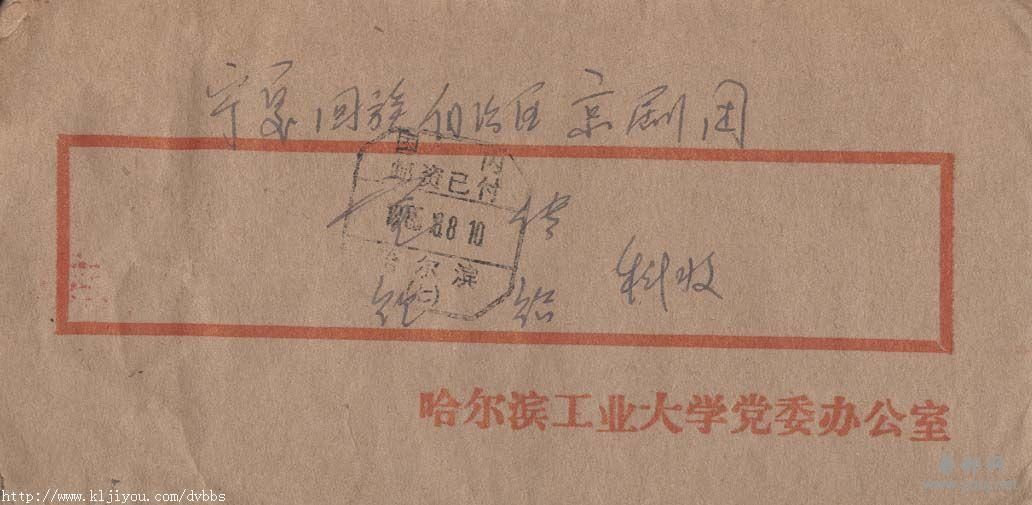 宁夏回族自治区京剧团
国内
邮资已付
8 10
哈尔滨
(二)
传
科收
哈尔滨工业大学党委办公室
http://www.kljiyou.com/dvbbs